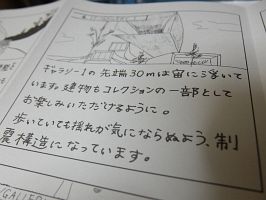 ギャラリー1の先端30mは宙に浮いて
います。建物もコレクションの一部として
お楽しみいただけるように。
歩いていても揺れが気にならぬよう、制
震構造になっています。